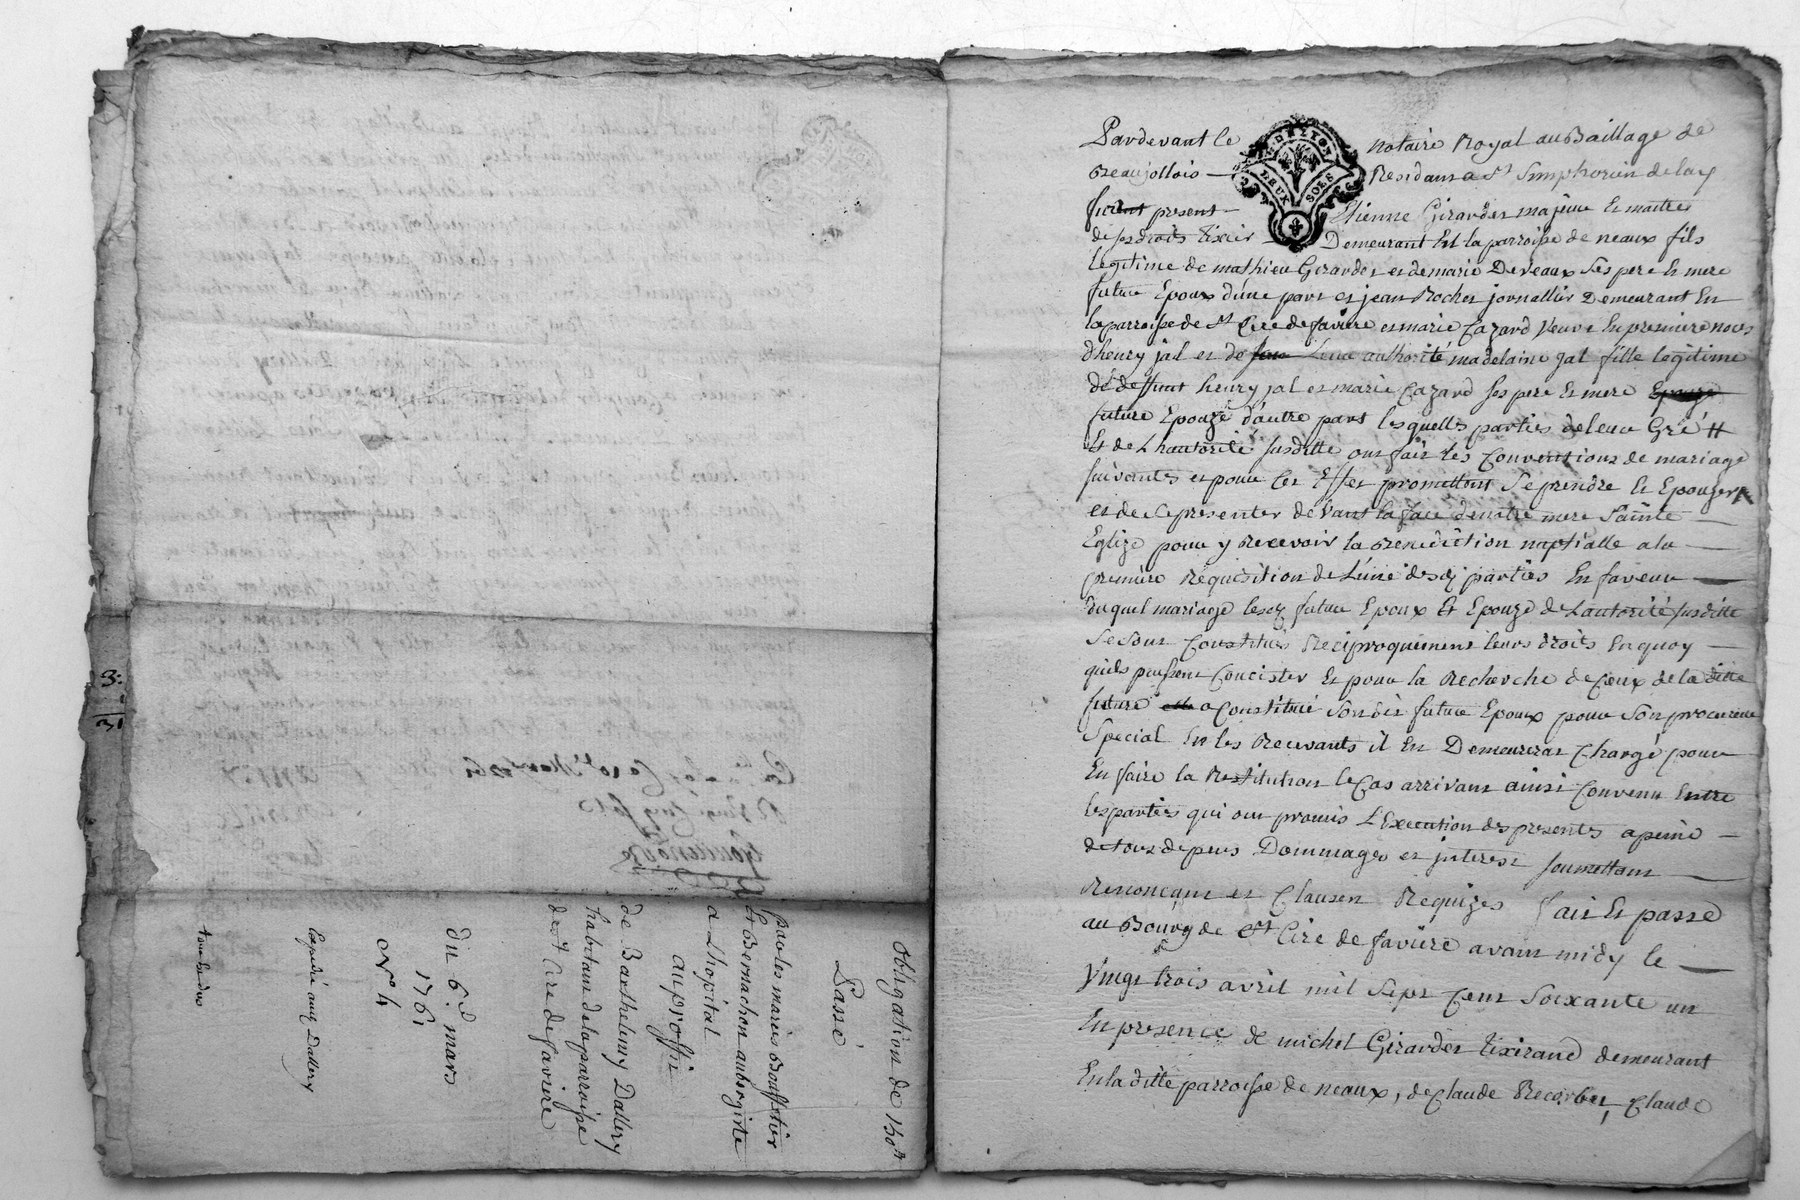 3:
31
Obligation de 150ᵗᵗ
Passé
par les mariés
Et Bernachon aubergiste
a Lhopital
au proffit
de Barthelemy Dallery
habitant de la parroisse
de st Cire de favière
du 6e mars
1761
No 4
Expedié aux Dallery
Pardevant le notaire Royal au Baillage de
Beaujollois Residant a St Simphorien de lay
fut present Etienne Girardet majeur Et maitre
de ses droits tixier Demeurant En la parroisse de neaux fils
legitime de mathieu Girardet et de marie Deveaux ses pere Et mere
futur Epoux d'une part et jean Rochet jornallier Demeurant En
la parroisse de St Cire de favière et marie Cazard Veuve En premiere noces
d'henry jal et de Leur authorité madelaine jal fille legitime
de deffunt henry jal et marie Cazard ses pere Et mere Epouze
future Epouze d'autre part lesquelles parties de leur Gré
Et de L'hautorité susditte ont fait les Conventions de mariage
suivantes et pour Cet Effet promettent Se prendre Et Epouzer
et de se presenter devant la face de notre mere Sainte
Eglize pour y Recevoir la Benediction nuptialle a la
premiere Requisition de L'une desd parties En faveur
duquel mariage lesd futur Epoux Et Epouze de L'autorité susditte
Se Sont Constitués Reciproquement leurs droits En quoy
quils puissent Concister Et pour la Recherche de Ceux de la ditte
future a Constitué Son dit futur Epoux pour Son procureur
Special En les Recevants il En Demeurerat Chargé pour
En faire la Restitution le Cas arrivant ainsi Convenu Entre
les parties qui ont promis L'Execution des presentes a peine
de tous depens Dommages et jnterest soumettant
Renonçant et Clauses Requizes fait Et passé
au Bourg de st Cire de favière avant midy le
Vingt trois avril mil Sept Cent Soixante un
En presence de michel Girardet tixirand demeurant
En la ditte parroisse de neaux, de Claude Recorbet, Claude